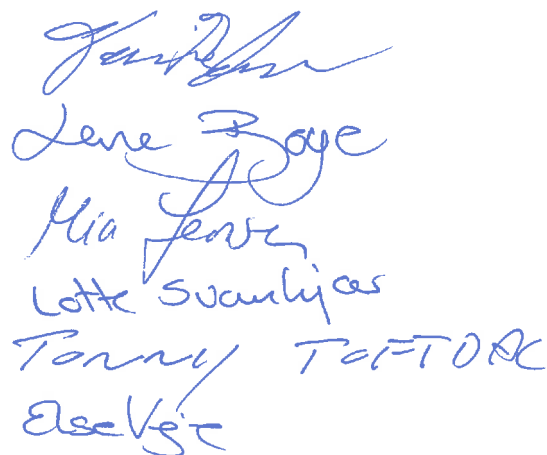 Lene Boye
Mia Jensen
Lotte Svanhjær
Tonny TOFTDAL
Else Veje